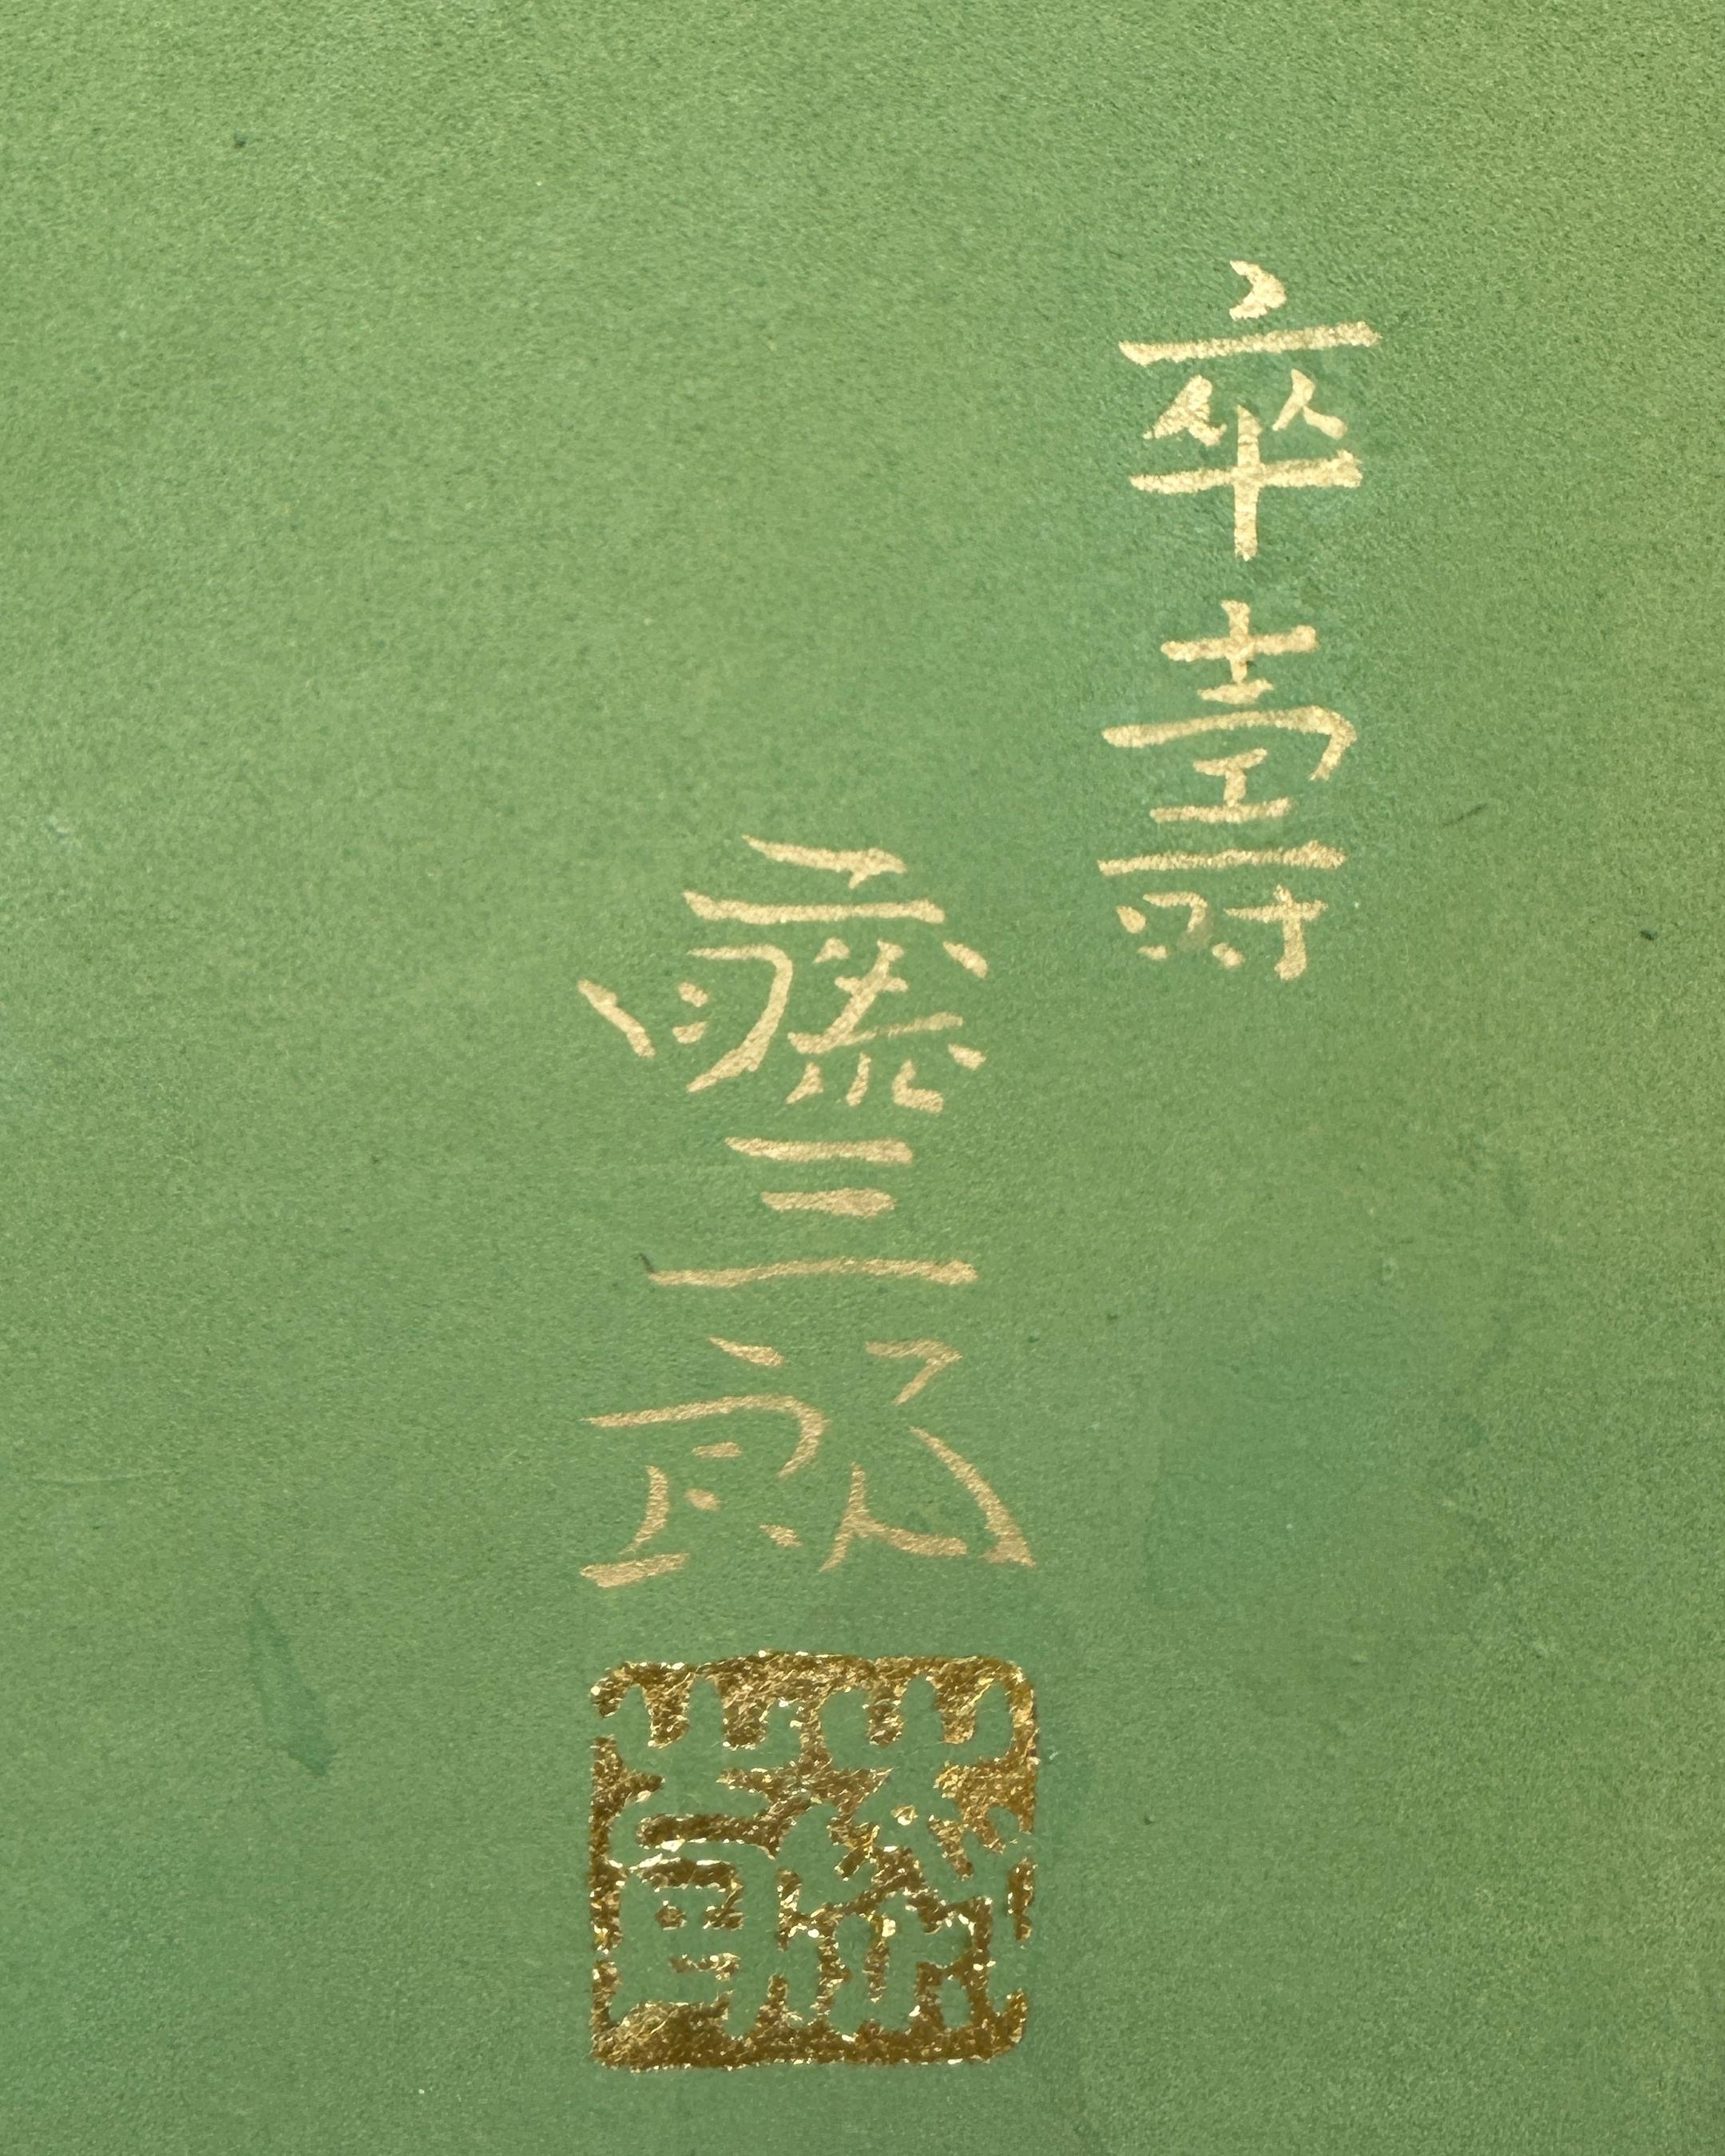 卒壽
藤三郎